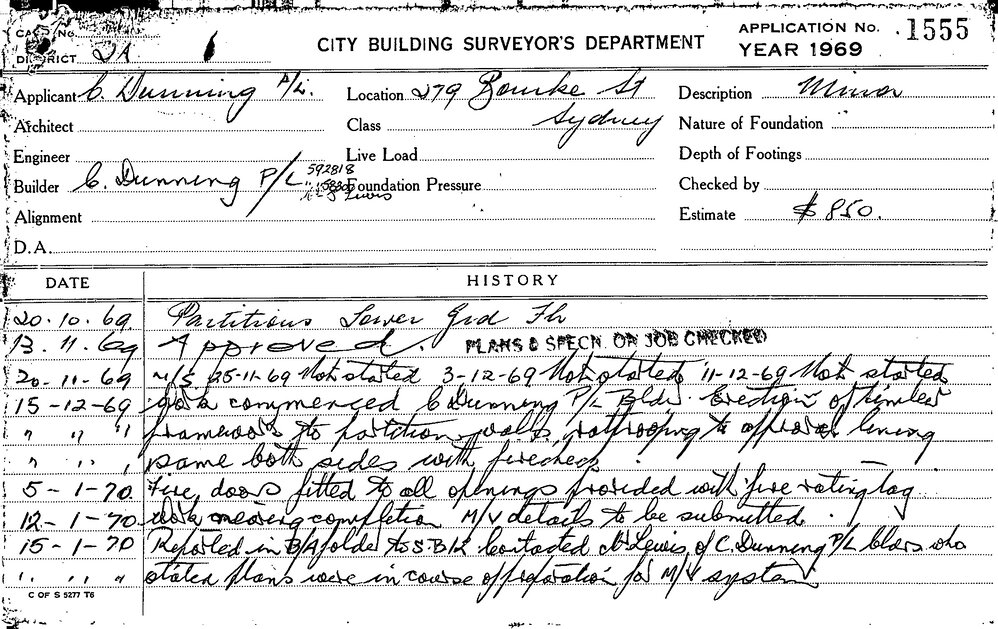 CARD No.
DISTRICT 2A
CITY BUILDING SURVEYOR'S DEPARTMENT
APPLICATION No. 1555
YEAR 1969
Applicant C. Dunning P/L. Location 279 Bourke St Description Minor
Architect Class Sydney Nature of Foundation
Engineer Live Load Depth of Footings
Builder C. Dunning P/L 592818 Foundation Pressure Checked by
Lewis
Alignment Estimate $850.
D.A.
DATE HISTORY
20.10.69 Partitions Lower Grd Flr
13.11.69 Approved. PLANS & SPECN. ON JOB CHECKED
20-11-69 N/S 25-11-69 Not started 3-12-69 Not started 11-12-69 Not started
15-12-69 Work commenced C Dunning P/L Bldr. Erection of timber
" " " framework to partition walls, ratproofing to approval lining
" " " same both sides with firecheck.
5-1-70. Fire doors fitted to all openings provided with fire rating tag
12-1-70 Work nearing completion M/V details to be submitted.
15-1-70 Reported in B/A folder to S.B.I. Contacted Mr Lewis, of C. Dunning P/L bldrs who
" " " stated plans were in course of preparation for M/V system
C OF S 5277 T6